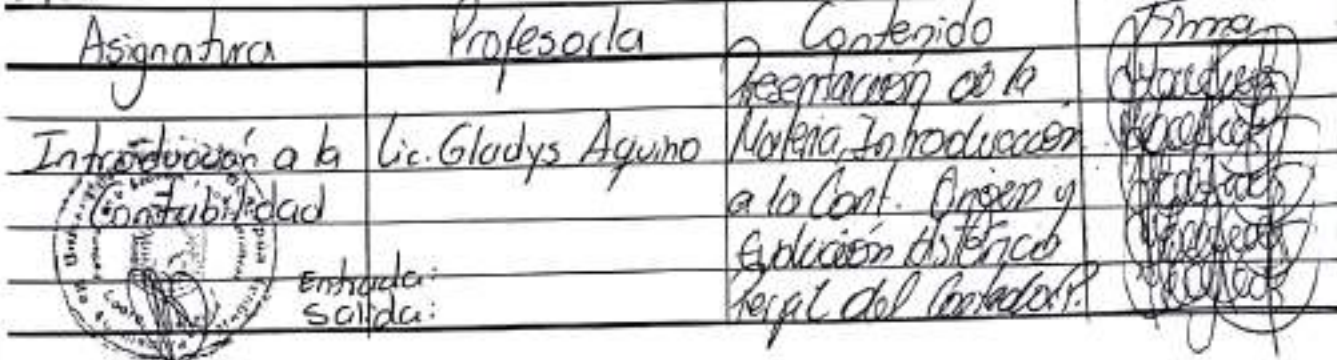 Asignatura
Profesor/a
Contenido
Firma
Introducción a la
Contabilidad
Lic. Gladys Aquino
Presentación de la
Materia, Introducción
a la Cont. Origen y
Evolución Histórica
Perfil del Contador P.
Entrada:
Salida: